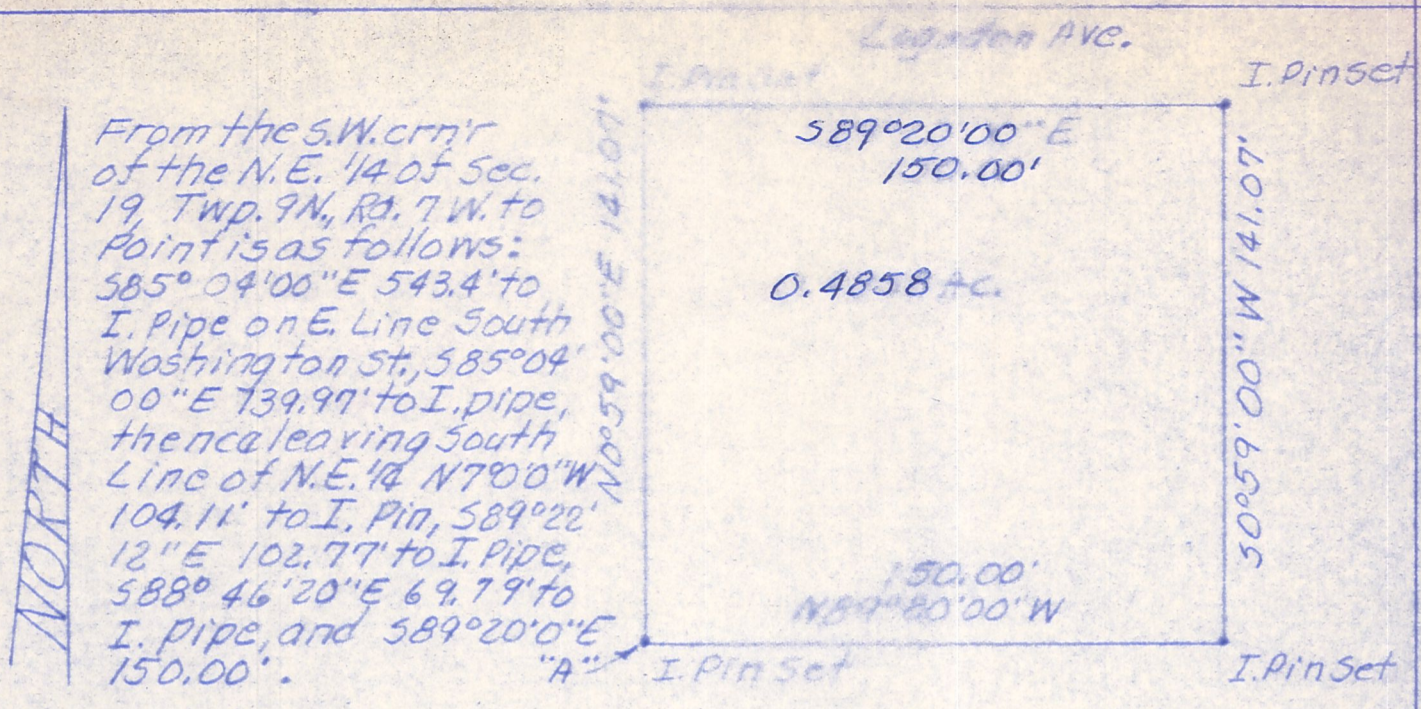 Ave.
I. Pin Set
I. Pin Set
From the S.W. crn'r
of the N.E. 1/4 of Sec.
19, Twp. 9N., Rg. 7 W. to
Point is as follows:
S85° 04'00"E 543.4' to
I. Pipe on E. Line South
Washington St., S85°04'
00"E 739.97' to I. pipe,
thence leaving South
Line of N.E. 1/4 N7°0'0"W
104.11' to I. Pin, S89°22'
12"E 102.77' to I. Pipe,
S88° 46'20"E 69.79' to
I. Pipe, and S89°20'0"E
150.00'.
"A"
NORTH
N0°59'00"E 141.07'
S89°20'00"E
150.00'
0.4858 Ac.
S0°59'00"W 141.07'
150.00'
N89°20'00"W
I. Pin Set
I. Pin Set